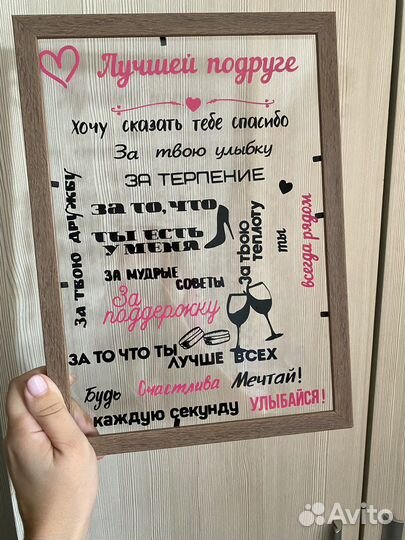 Лучшей подруге
Хочу сказать тебе спасибо
За твою улыбку
ЗА ТЕРПЕНИЕ
За твою дружбу
ЗА ТО, ЧТО
ТЫ ЕСТЬ
У МЕНЯ
За твою
теплоту
ты
всегда рядом
ЗА МУДРЫЕ
СОВЕТЫ
За
поддержку
ЗА ТО ЧТО ТЫ
ЛУЧШЕ ВСЕХ
Будь Счастлива Мечтай!
каждую секунду УЛЫБАЙСЯ!
Avito